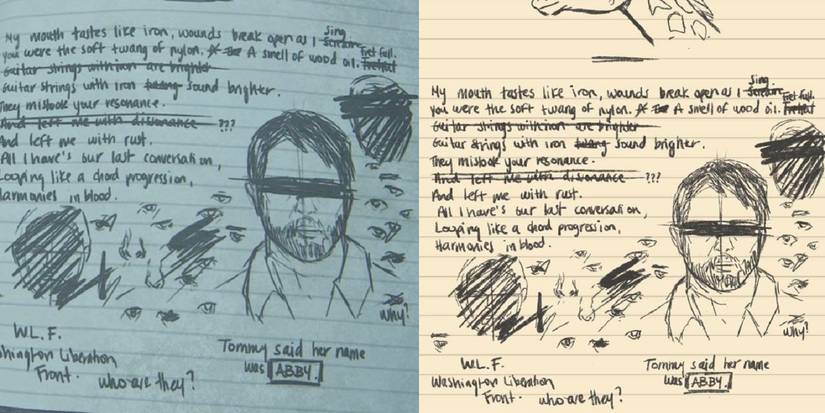 My mouth tastes like iron, wounds break open as I Scream Sing
you were the soft twang of nylon. A smell of wood oil. Fretful Fret full.
Guitar strings with iron are brighter
Guitar strings with iron sound brighter.
They mistook your resonance.
And left me with dissonance ???
And left me with rust.
All I have's our last conversation,
Looping like a chord progression,
Harmonies in blood.
why?
W.L.F.
shington Liberation
Front.
who are they?
Tommy said her name
was ABBY.
My mouth tastes like iron, wounds break open as I Scream Sing
you were the soft twang of nylon. A smell of wood oil. Fretful Fret full.
Guitar strings with iron are brighter
Guitar strings with iron sound brighter.
They mistook your resonance.
And left me with dissonance ???
And left me with rust.
All I have's our last conversation,
Looping like a chord progression,
Harmonies in blood.
why?
W.L.F.
Washington Liberation
Front.
who are they?
Tommy said her name
was ABBY.